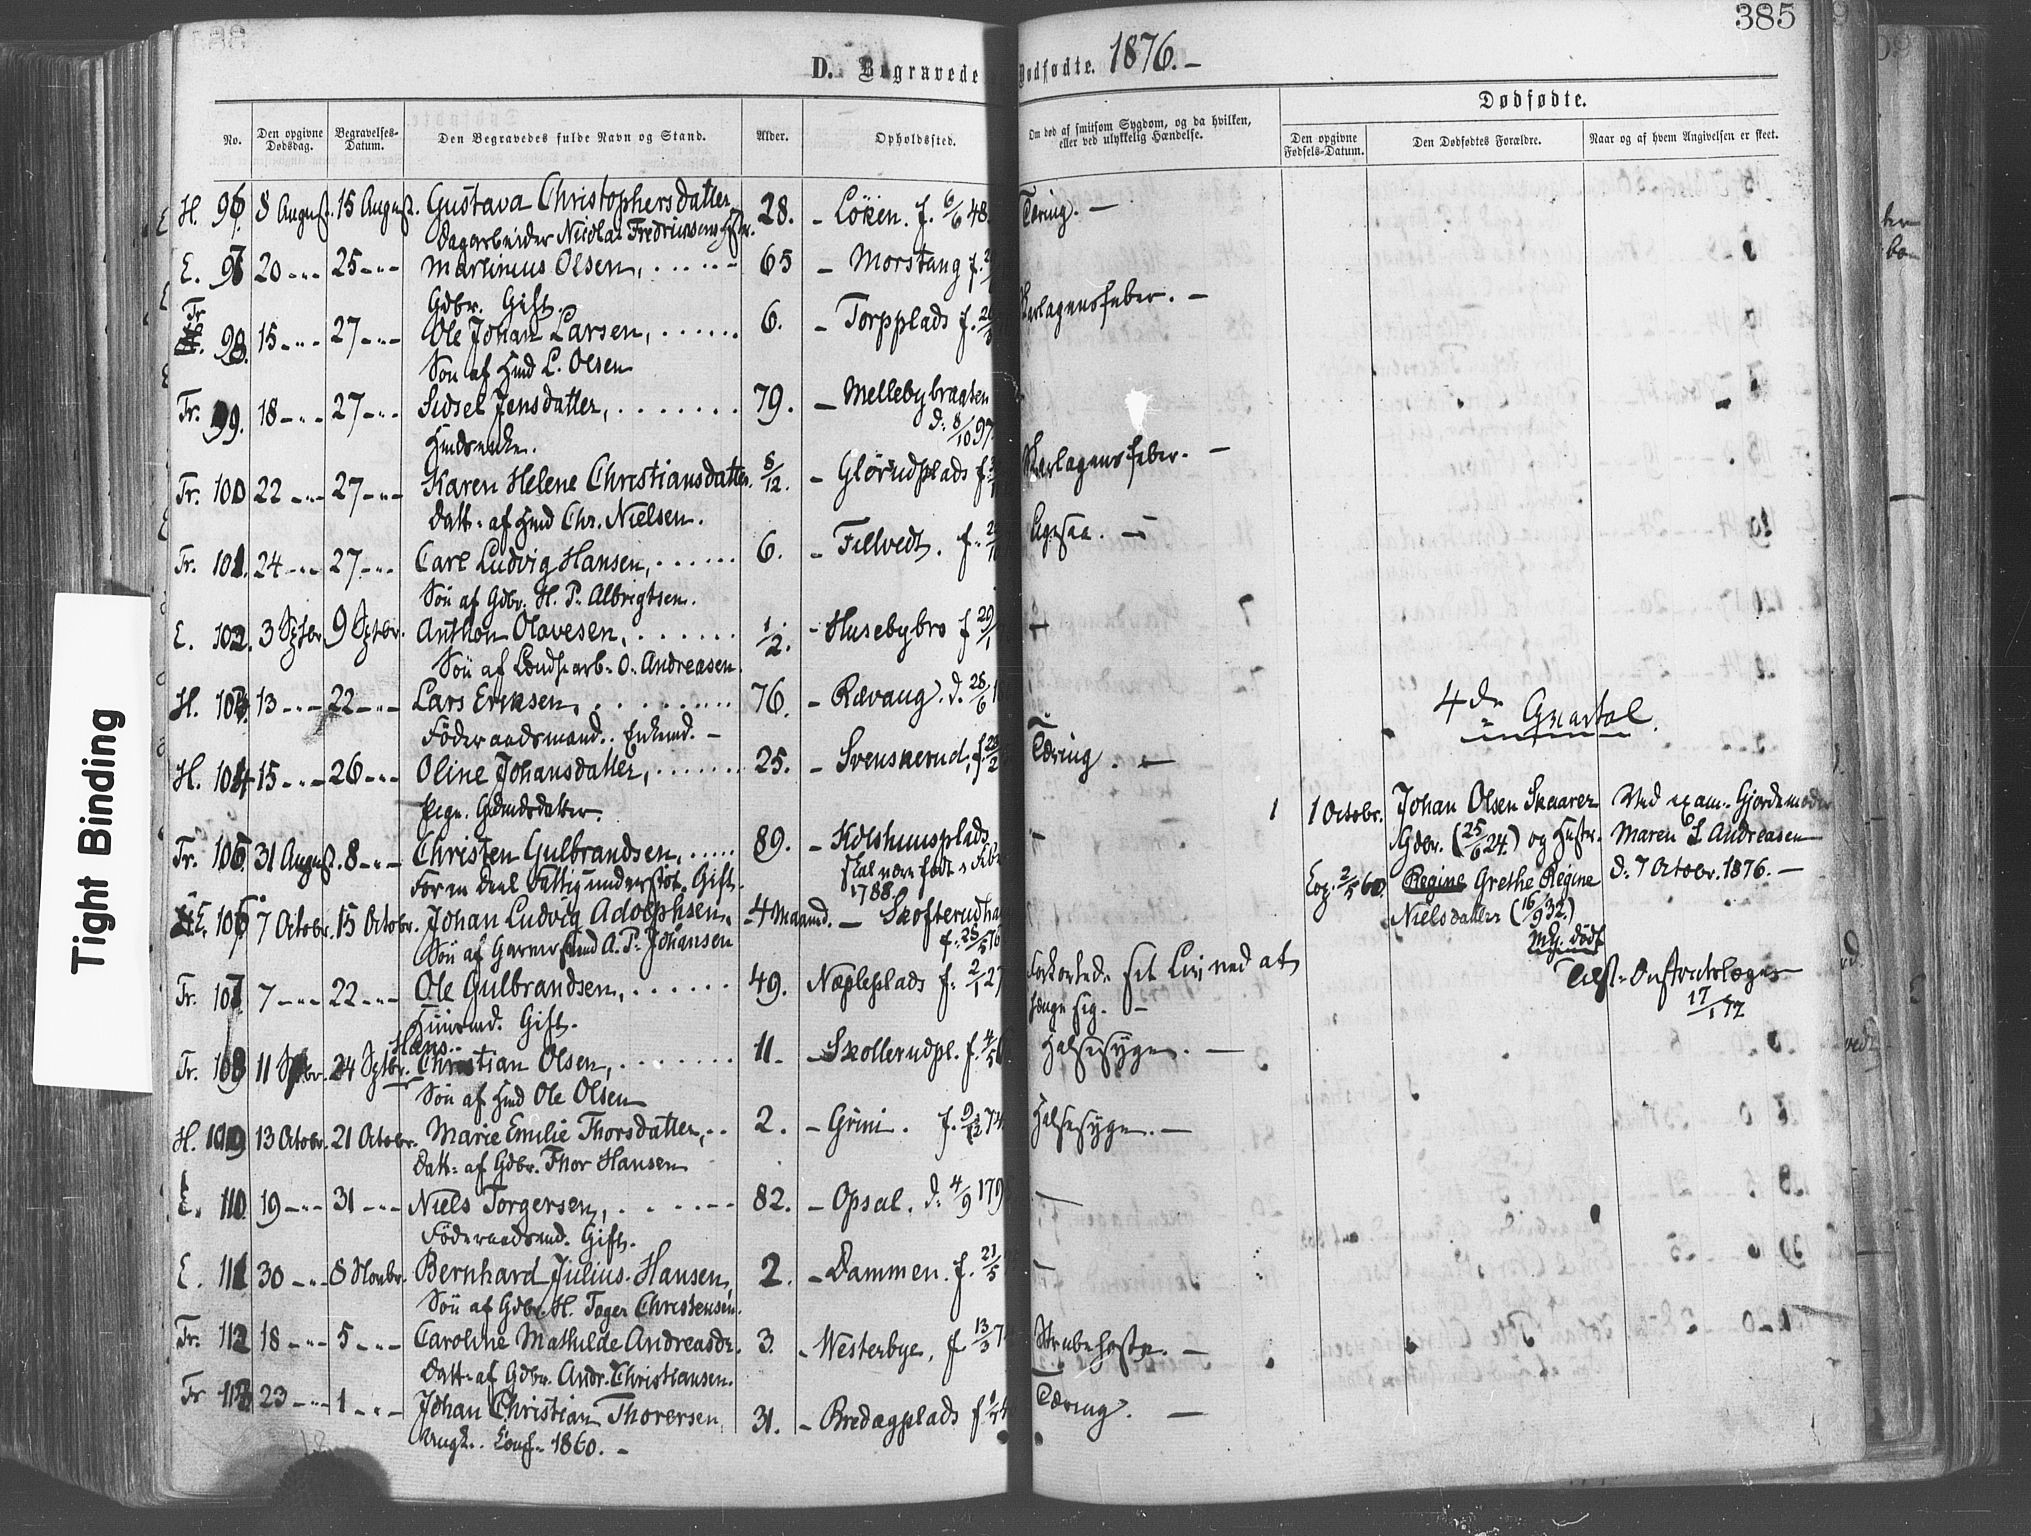 385
D. Begravede Dødfødte. 1876. –
Dødfødte.
No.
Den opgivne Dødsdag.
Begravelses-Datum.
Den Begravedes fulde Navn og Stand.
Alder.
Opholdssted.
Om død af smitsom Sygdom, og da hvilken, eller ved ulykkelig Hændelse.
Den opgivne Fødsels-Datum.
Den Dødfødtes Forældre.
Naar og af hvem Angivelsen er skeet.
H. 96. 8 August. 15 August. Gustava Christophersdatter 28. – Löken. f. 6/6 48. Tæring. –
Dagarbeider Nicolai Fredriksens
E. 97 20 – " – 25 – " – Martinius Olsen, 65 – Morstang f.
Gdbr. Gift.
Tr. 98. 15 – " – 27 – " – Ole Johan Larsen, 6. – Torpplads f. Skarlagensfeber. –
Sön af Hmd L. Olsen
Tr. 99. 18 – " – 27 – " – Sidsel Jensdatter, 79. – Mellebybraaten
d. 8/10 97
Hmdsenke.
Tr. 100 22 – " – 27 – " – Karen Helene Christiansdatter 8/12. – Glörudplads f. Skarlagensfeber. –
Datt. af Hmd Chr. Nielsen.
Tr. 101. 24 – " – 27 – " – Carl Ludvig Hansen, 6. – Fillvedt. f. Ligesaa. –
Sön af Gdbr. H. P. Albrigtsen.
E. 102. 3 Septbr. 9 Septbr. Anthon Olavesen, 1/2. – Husebybro f 29/1
Sön af O. Andreasen.
H. 103. 13 – " – 22 – " – Lars Eriksen, 76. – Rævaug. d. 28/6
Föderaadsmand. Enkemd. –
H. 104 15 – " – 26 – " – Oline Johansdatter, 25. – Svenskerud, f. Tæring. –
Pige. Gdmdsdatter.
Tr. 105 31 August. 8 – " – Christen Gulbrandsen, 89. – Kolshuusplads
Forn Deel Fattigunderstöt. Gift. skal være födt
1788.
E. 106 7 Octobr. 15 Octobr. Johan Ludvig Adolphsen, 4 Maaned. – Skofterudhag
Sön af A. P. Johansen f. 28/5 76
Tr. 107 7 – " – 22 – " – Ole Gulbrandsen, 49. Næpleplads f. 2/1 27 Forkortede sit Liv ved at
Huusmd. Gift. hænge sig. –
Hans
Tr. 108 11 Septbr. 24 Septbr. Christian Olsen, 11. – Skollerudpl. f. 4/5 6 Halssyge. –
Sön af Hmd Ole Olsen
H. 109 13 Octobr. 21 Octobr. Marie Emilie Thorsdatter, 2. – Grini. f. 9/12 74 Halssyge. –
Datt. af Gdbr. Thor Hansen
E. 110. 19 – " – 31 – " – Niels Torgersen, 82. – Opsal. d. 4/9 179
Föderaadsmd. Gift.
E. 111 30 – " – 8 Novbr. Bernhard Julius Hansen, 2. – Dammen. f. 21/5
Sön af Gdbr. H. Tager Christensen.
Tr. 112 18 – " – 5 – " – Caroline Mathilde Andreasdr. 3. – Westerbye, f 13/3 7 Strubehoste. –
Datt. af Gdbr. Andr. Christiansen.
Tr 113 23 – " – 1 – " – Johan Christian Thorersen, 31. – Bredagplads f. Tæring. –
Conf. 1860. –
4de Qvartal.
1 1 Octobr. Johan Olsen Skaarer Ved exam. Gjordemoder
Gdbr. (25/6 24.) og Hustr. Maren L Andreasen
Cop. 2/5 60 Regine Grethe Regine d. 7 Octobr. 1876. –
Nielsdatter (16/9 32.)
Mk. dødf
Distriktslægen
17/1 77
Tight Binding